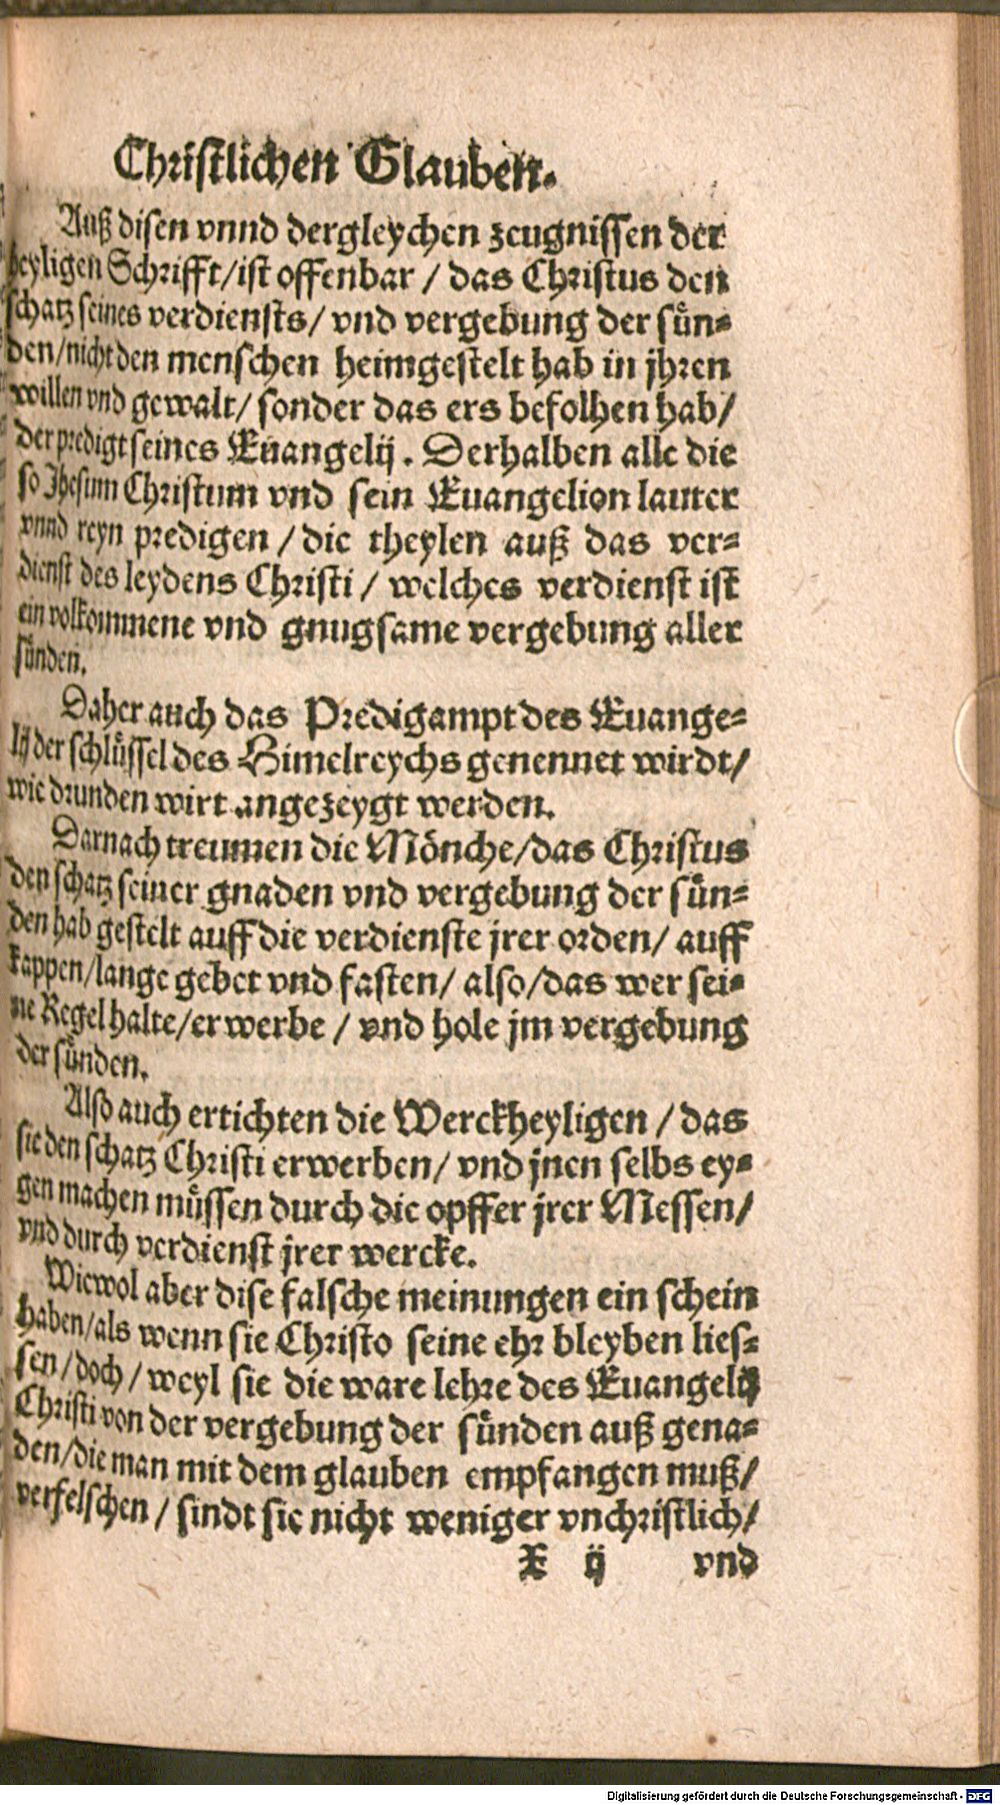 Christlichen Glauben.
Auß disen vnnd dergleychen zeugnissen der
heyligen Schrifft/ist offenbar / das Christus den
schatz seines verdiensts/ vnd vergebung der sün-
den/nicht den menschen heimgestelt hab in jhren
willen vnd gewalt/ sonder das ers befolhen hab/
der predigt seines Euangelij. Derhalben alle die
so Jhesum Christum vnd sein Euangelion lauter
vnnd reyn predigen / die theylen auß das ver-
dienst des leydens Christi / welches verdienst ist
ein volkommene vnd gnugsame vergebung aller
sünden.
Daher auch das Predigampt des Euange-
lij der schlüssel des Himelreychs genennet wirdt/
wie drunden wirt angezeygt werden.
Darnach treumen die Mönche/das Christus
den schatz seiner gnaden vnd vergebung der sün-
den hab gestelt auff die verdienste jrer orden/ auff
kappen/lange gebet vnd fasten/ also/das wer sei-
ne Regel halte/erwerbe / vnd hole jm vergebung
der sünden.
Also auch ertichten die Werckheyligen / das
sie den schatz Christi erwerben/ vnd jnen selbs ey-
gen machen müssen durch die opffer jrer Messen/
vnd durch verdienst jrer wercke.
Wiewol aber dise falsche meinungen ein schein
haben/als wenn sie Christo seine ehr bleyben lies-
sen/doch/weyl sie die ware lehre des Euangelij
Christi von der vergebung der sünden auß gena-
den/die man mit dem glauben empfangen muß/
verfelschen / sindt sie nicht weniger vnchristlich/
X ij vnd
Digitalisierung gefördert durch die Deutsche Forschungsgemeinschaft - DFG